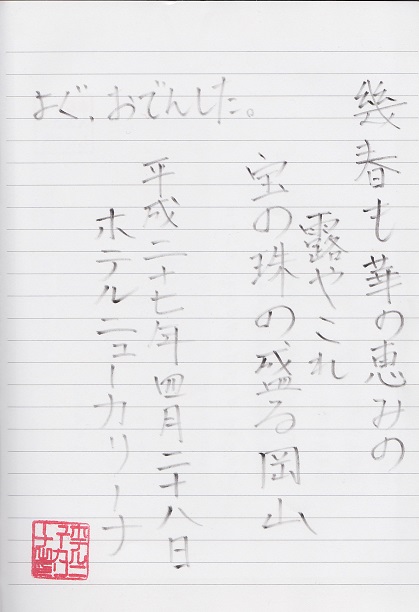 幾春も華の恵みの
露やこれ
宝の珠の盛る岡山
平成二十七年四月二十八日
ホテルニューカリーナ
よぐ、おでんした。